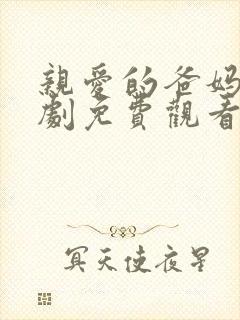 親愛的爸媽
劇免費觀看
冥天使夜星